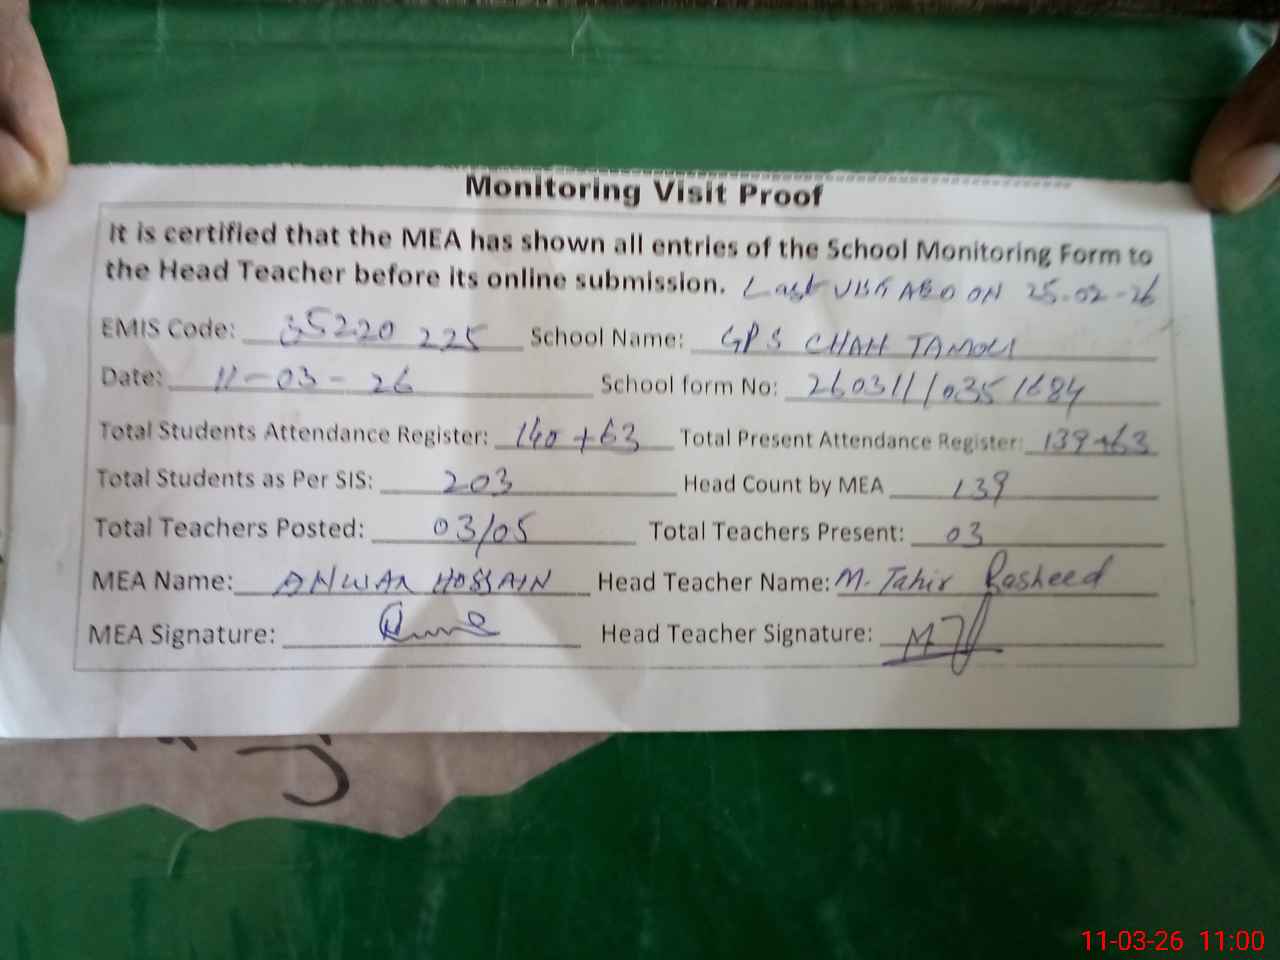 Monitoring Visit Proof
It is certified that the MEA has shown all entries of the School Monitoring Form to
the Head Teacher before its online submission. Last Visit AEO ON 25-02-26
EMIS Code: 35220 225 School Name: GPS CHAH TAMOLI
Date: 11-03-26 School form No: 260311/0351684
Total Students Attendance Register: 140+63 Total Present Attendance Register: 139+63
Total Students as Per SIS: 203 Head Count by MEA 139
Total Teachers Posted: 03/05 Total Teachers Present: 03
MEA Name: ANWAR HOSSAIN Head Teacher Name: M. Tahir Rasheed
MEA Signature: Head Teacher Signature:
11-03-26 11:00